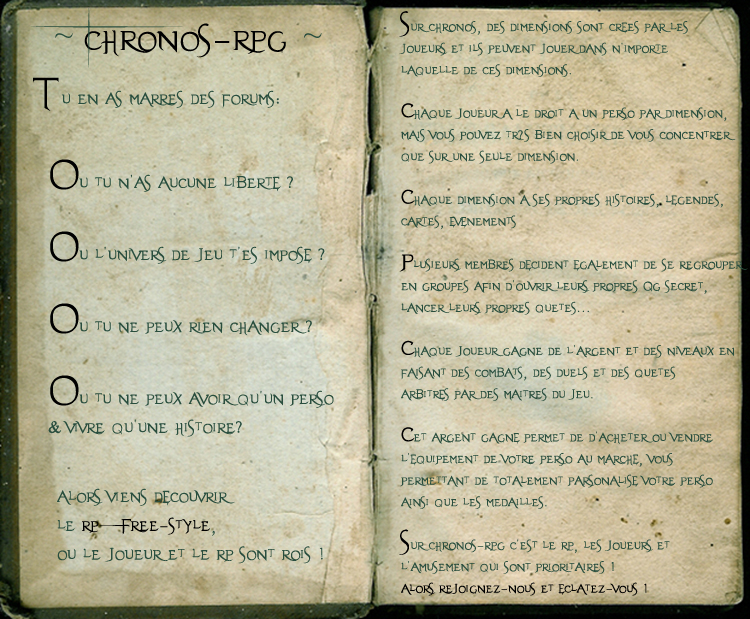 ~ CHRONOS-RPG ~
TU EN AS MARRES DES FORUMS:
OU TU N'AS AUCUNE LIBERTE ?
OU L'UNIVERS DE JEU T'ES IMPOSE ?
OU TU NE PEUX RIEN CHANGER ?
OU TU NE PEUX AVOIR QU'UN PERSO
& VIVRE QU'UNE HISTOIRE?
ALORS VIENS DECOUVRIR
LE RP FREE-STYLE,
OU LE JOUEUR ET LE RP SONT ROIS !
SUR CHRONOS, DES DIMENSIONS SONT CREES PAR LES
JOUEURS ET ILS PEUVENT JOUER DANS N'IMPORTE
LAQUELLE DE CES DIMENSIONS.
CHAQUE JOUEUR A LE DROIT A UN PERSO PAR DIMENSION,
MAIS VOUS POUVEZ TR2S BIEN CHOISIR DE VOUS CONCENTRER
QUE SUR UNE SEULE DIMENSION.
CHAQUE DIMENSION A SES PROPRES HISTOIRES, LEGENDES,
CARTES, EVENEMENTS
PLUSIEURS MEMBRES DECIDENT EGALEMENT DE SE REGROUPER
EN GROUPES AFIN D'OUVRIR LEURS PROPRES QG SECRET,
LANCER LEURS PROPRES QUETES...
CHAQUE JOUEUR GAGNE DE L'ARGENT ET DES NIVEAUX EN
FAISANT DES COMBATS, DES DUELS ET DES QUETES
ARBITRES PAR DES MAITRES DU JEU.
CET ARGENT GAGNE PERMET DE D'ACHETER OU VENDRE
L'EQUIPEMENT DE VOTRE PERSO AU MARCHE, VOUS
PERMETTANT DE TOTALEMENT PARSONALISE VOTRE PERSO
AINSI QUE LES MEDAILLES.
SUR CHRONOS-RPG C'EST LE RP, LES JOUEURS ET
L'AMUSEMENT QUI SONT PRIORITAIRES !
ALORS REJOIGNEZ-NOUS ET ECLATEZ-VOUS !